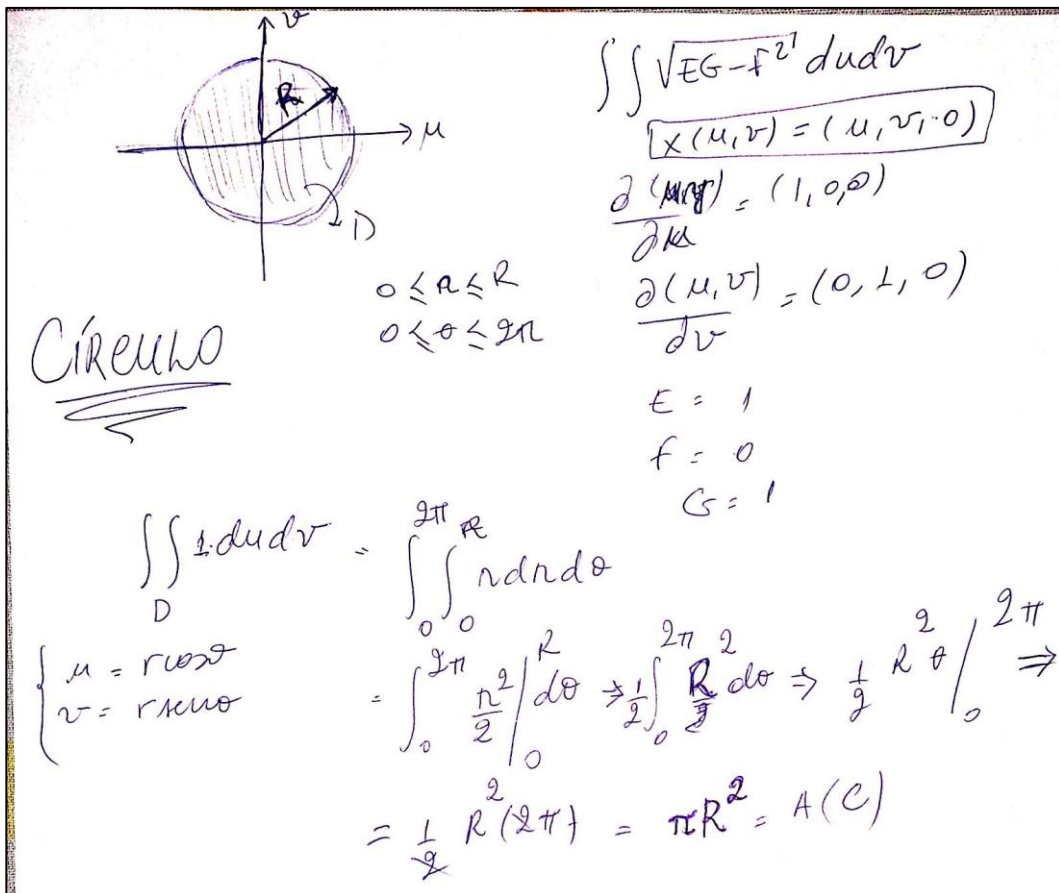 v
R
μ
D
∫∫ √EG-f² dudv
x(μ,v) = (μ,v,0)
∂(μ,v)/∂μ = (1,0,0)
∂(μ,v)/dv = (0,1,0)
0 ≤ r ≤ R
0 ≤ θ ≤ 2π
CÍRCULO
E = 1
f = 0
G = 1
∫∫_D 1.dudv = ∫_0^2π ∫_0^R r dr dθ
{ μ = rcosθ
v = rsenθ
= ∫_0^2π r²/2 |_0^R dθ ⇒ 1/2 ∫_0^2π R² dθ ⇒ 1/2 R² θ |_0^2π ⇒
= 1/2 R² (2π) = πR² = A(C)